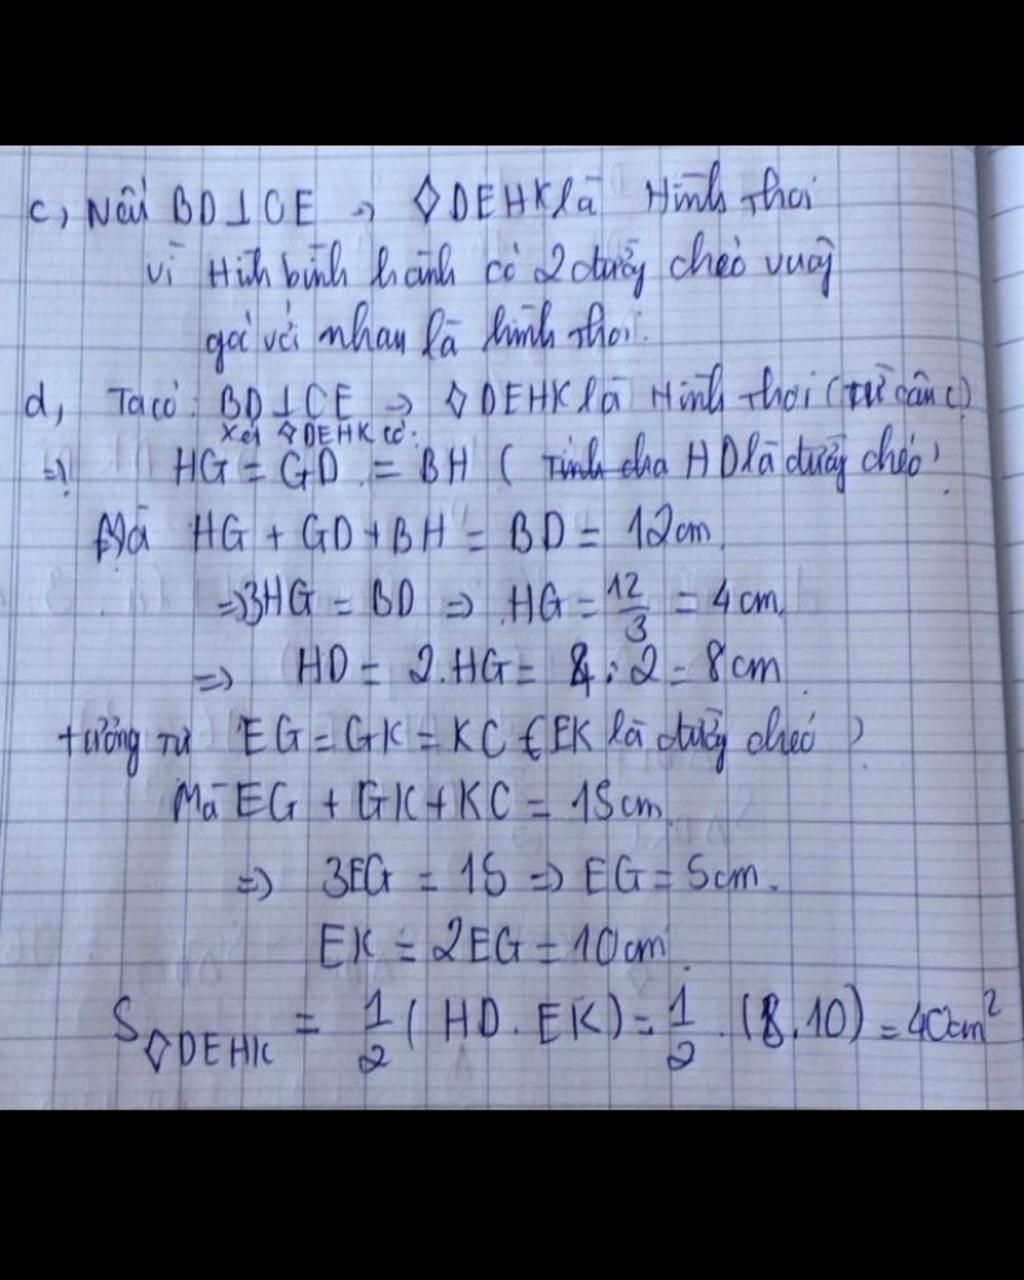 c, Nếu BD⊥CE => ◇DEHK là Hình thoi
vì Hình bình hành có 2 đường chéo vuông
góc với nhau là hình thoi.
d, Ta có: BD⊥CE => ◇DEHK là Hình thoi (từ câu c)
Xét ◇DEHK có:
=> HG = GD = BH ( HD là đường chéo)
Mà HG + GD + BH = BD = 12cm
=> 3HG = BD => HG = 12/3 = 4cm
=> HD = 2.HG = 4.2 = 8cm
tương tự EG = GK = KC (EK là đường chéo)
Mà EG + GK + KC = 15cm
=> 3EG = 15 => EG = 5cm.
EK = 2EG = 10cm.
S◇DEHK = 1/2 ( HD . EK) = 1/2 . (8.10) = 40cm²